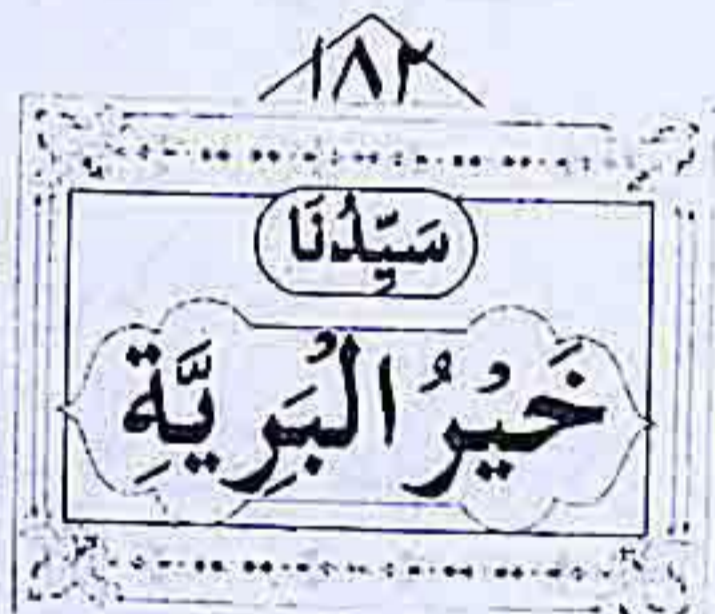 ۱۸۲
سَيِّدُنَا
خَيْرُ الْبَرِيَّةِ